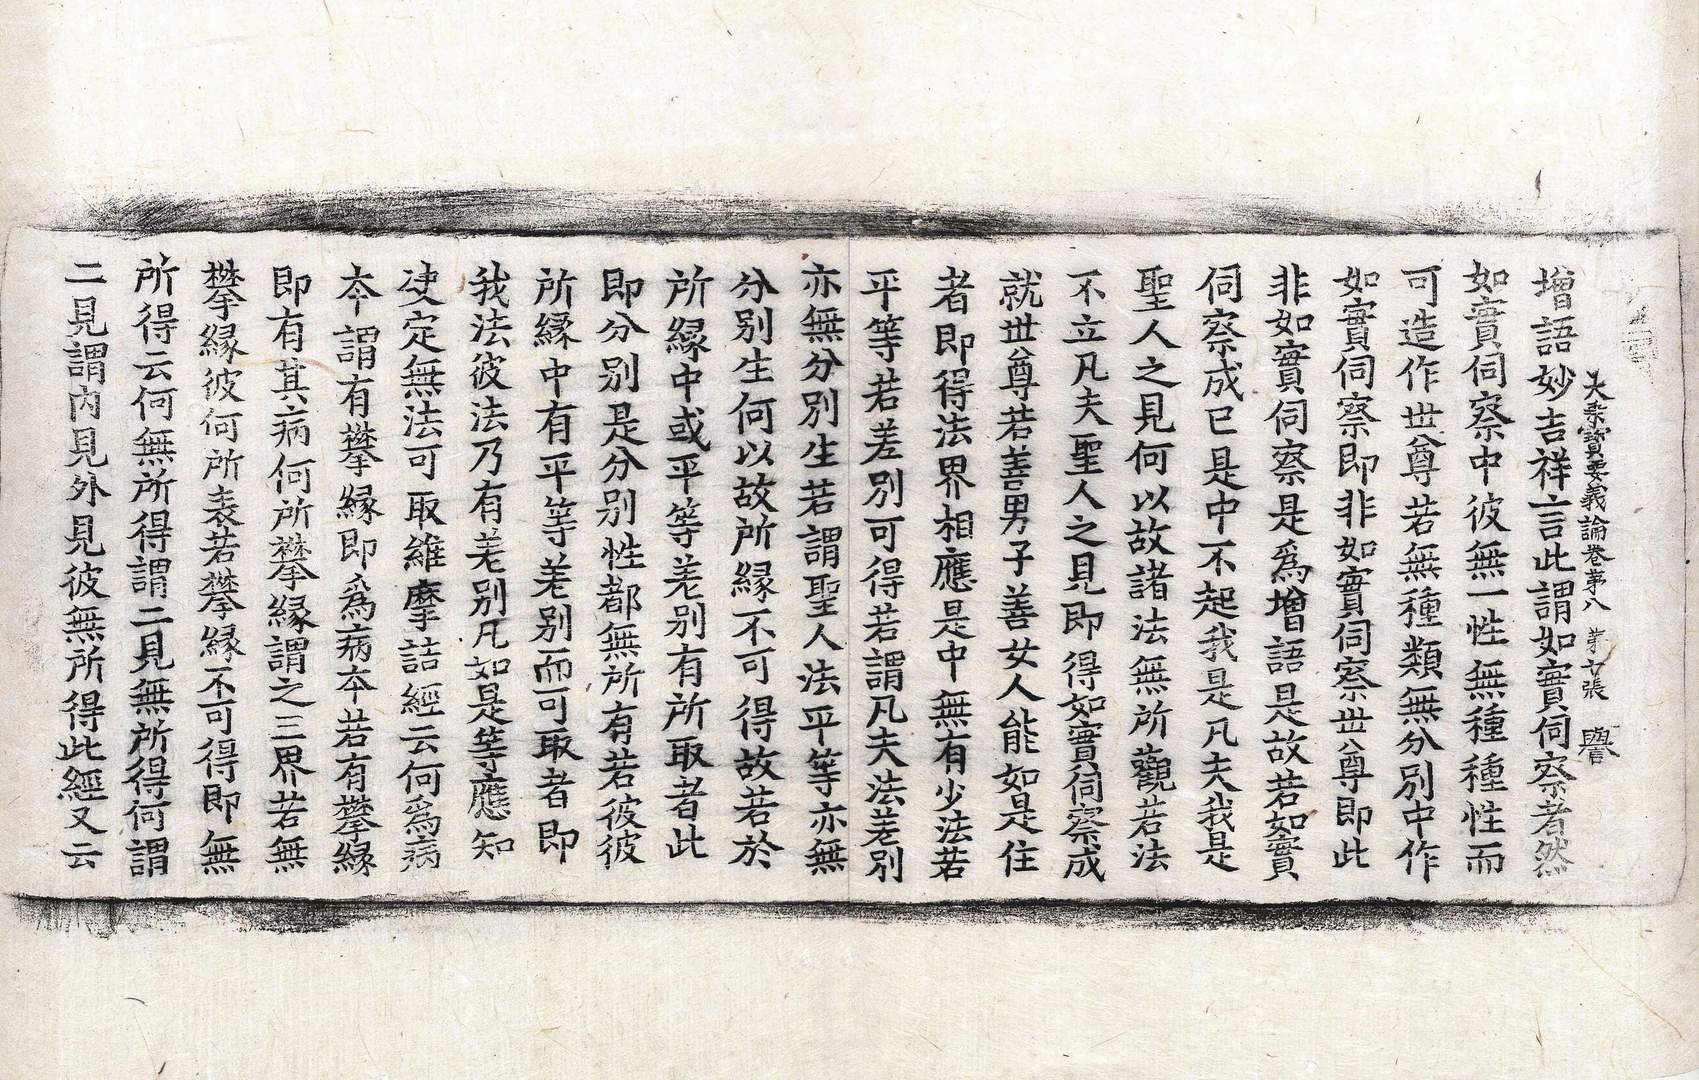 大乘寶要義論卷第八 第七張 譽
增語妙吉祥言此謂如實伺察者然
如實伺察中彼無一性無種種性而
可造作世尊若無種類無分別中作
如實伺察即非如實伺察世尊即此
非如實伺察是爲增語是故若如實
伺察成已是中不起我是凡夫我是
聖人之見何以故諸法無所觀若法
不立凡夫聖人之見即得如實伺察成
就世尊若善男子善女人能如是住
者即得法界相應是中無有少法若
平等若差別可得若謂凡夫法差別
亦無分別生若謂聖人法平等亦無
分別生何以故所緣不可得故若於
所緣中或平等差別有所取者此
即分別是分別性都無所有若彼彼
所緣中有平等差別而可取者即
我法彼法乃有差別凡如是等應知
決定無法可取維摩詰經云何爲病
本謂有攀緣即爲病本若有攀緣
即有其病何所攀緣謂之三界若無
攀緣彼何所表若攀緣不可得即無
所得云何無所得謂二見無所得何謂
二見謂內見外見彼無所得此經又云